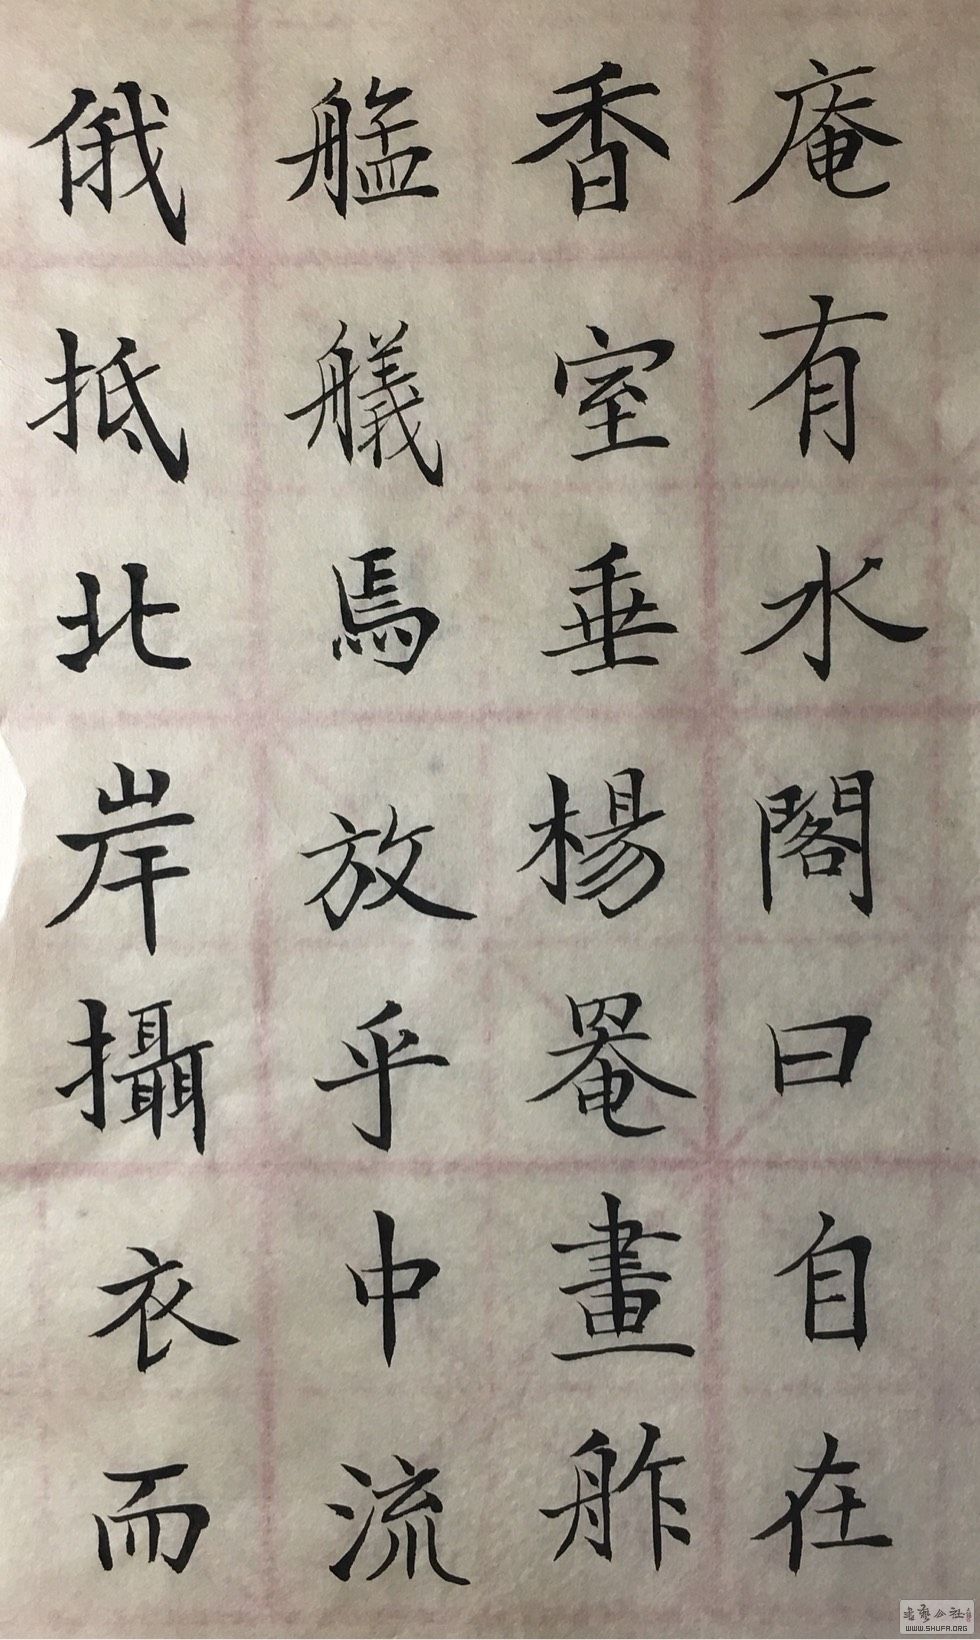 庵有水閣曰自在
香室垂楊罨畫舴
艋艤焉放乎中流
俄抵北岸攝衣而
WWW.SHUFA.ORG